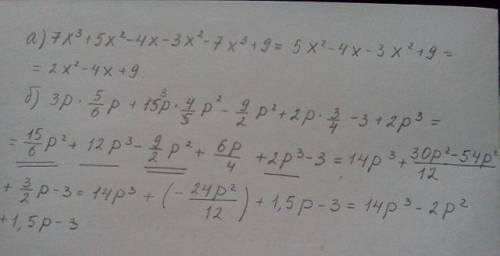 а) 7x³+5x²-4x-3x²-7x³+9= 5x²-4x-3x²+9=
= 2x²-4x+9
б) 3p · 5/6 p + 15p · 4/5 p² - 9/2 p² + 2p · 3/4 - 3 + 2p³ =
= 15/6 p² + 12p³ - 9/2 p² + 6p/4 + 2p³ - 3 = 14p³ + (30p² - 54p²)/12
+ 3/2 p - 3 = 14p³ + (- 24p²/12) + 1,5p - 3 = 14p³ - 2p²
+1,5p-3